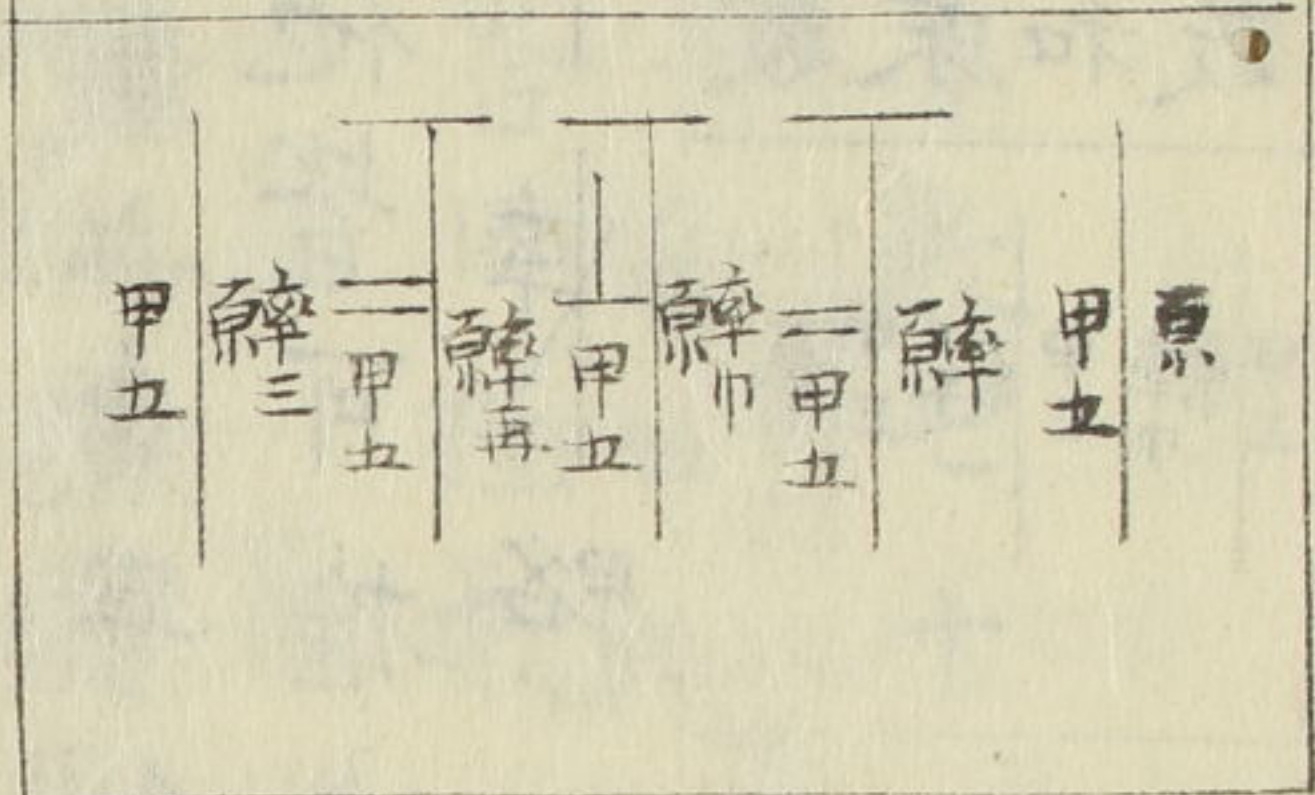 原
甲五
原率
二甲五
原率巾
⊥甲五
原率再
二甲五
原率三
甲五